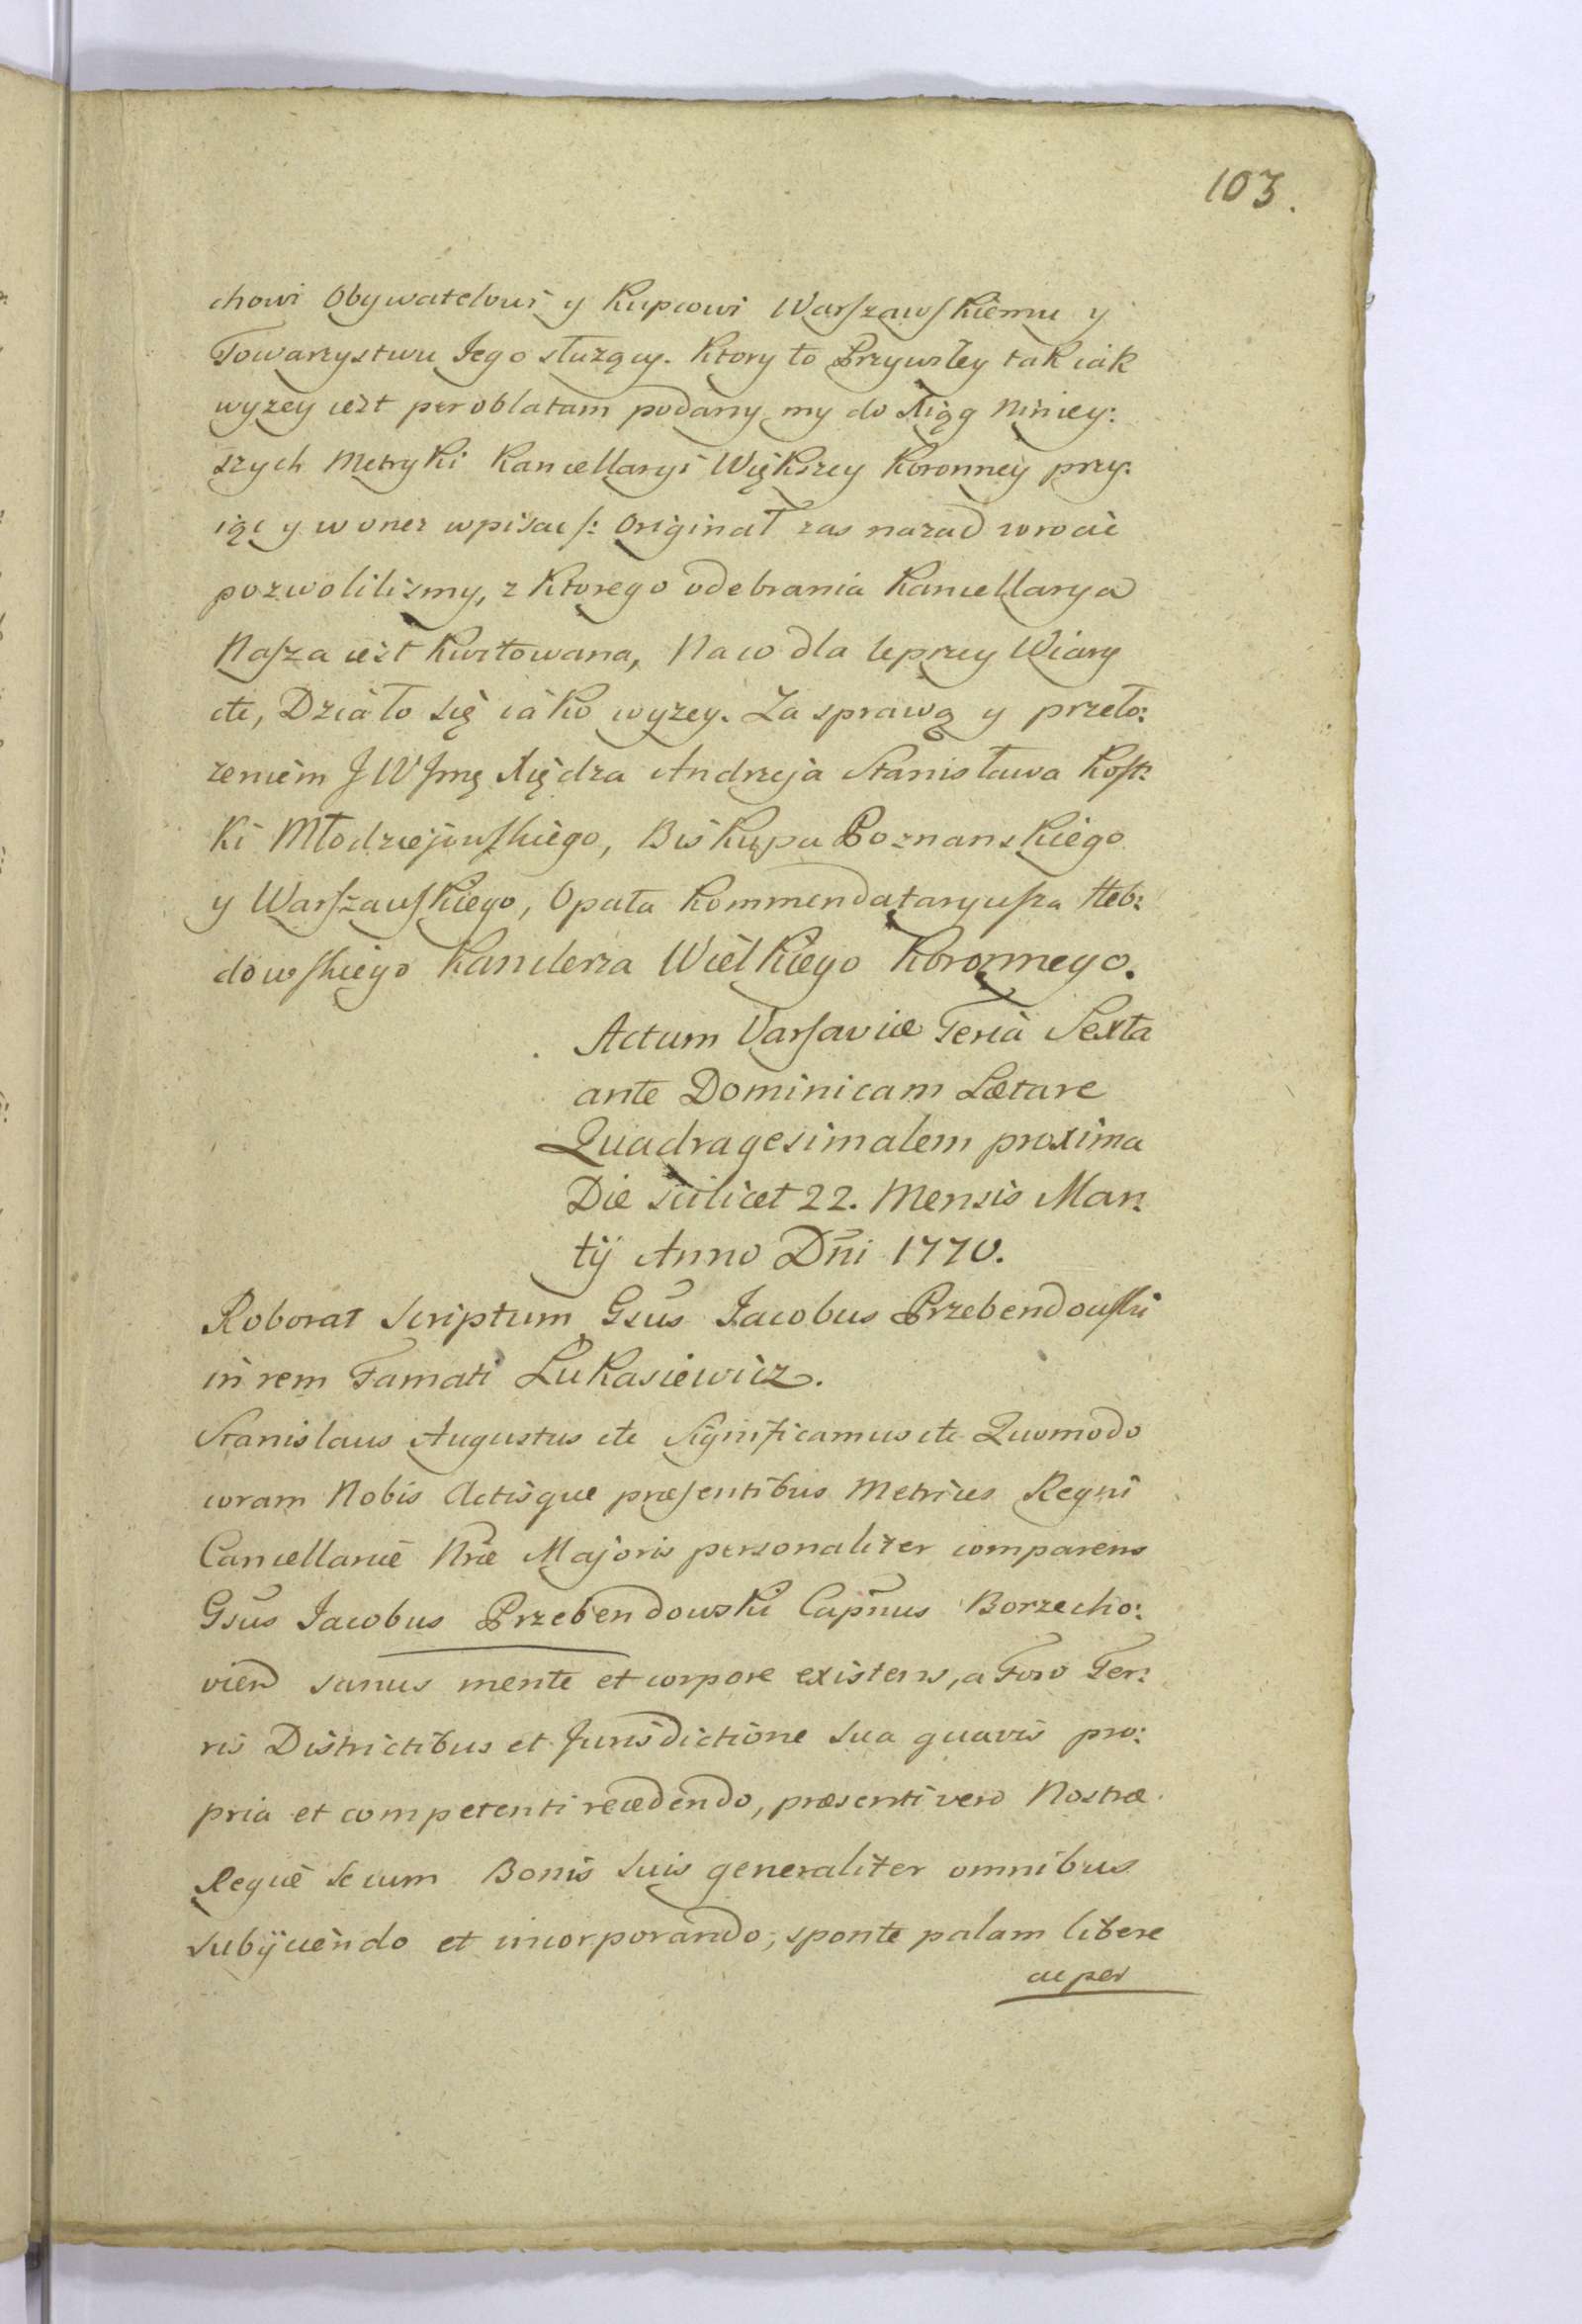 103.
chowi Obywatelowi y Kupcowi Warszawskiemu y
Towarzystwu Jego służący. Ktory to Przywiley tak iak
wyzey iest per oblatam podany my do Xiąg niniey:
szych Metryki Kancellaryi Większey Koronney przy:
iąc y w onez wpisac /: Originał zas nazad wrocic
pozwolilismy, z ktorego odebrania Kancellarya
Nasza iest kwitowana, Na co dla lepszey Wiary
etc, Działo się iako wyzey. Za sprawą y przeło:
zeniem JWJmę Xiędza Andrzeja Stanisława Kost:
ki Młodziejowskiego, Biskupa Poznanskiego
y Warszawskiego, Opata Kommendataryusza Heb:
dowskiego Kanclerza Wielkiego Koronnego.
Actum Varsaviæ Feria Sexta
ante Dominicam Lætare
Quadragesimalem proxima
Die scilicet 22. Mensis Mar:
tij Anno Dni 1770.
Roborat Scriptum Gsus Jacobus Przebendowski
in rem Famati Lukasiewicz.
Stanislaus Augustus etc Significamus etc Quomodo
coram Nobis Actisque præsentibus Metrices Regni
Cancellariæ Nræ Majoris personaliter comparens
Gsus Jacobus Przebendowski Capnus Borzecho:
vien sanus mente et corpore existens, a Foro Ter:
ris Districtibus et Jurisdictione sua quavis pro:
pria et competenti recedendo, præsenti vero Nostræ
Regiæ se cum Bonis suis generaliter omnibus
subijciendo et incorporando, sponte palam libere
ac per